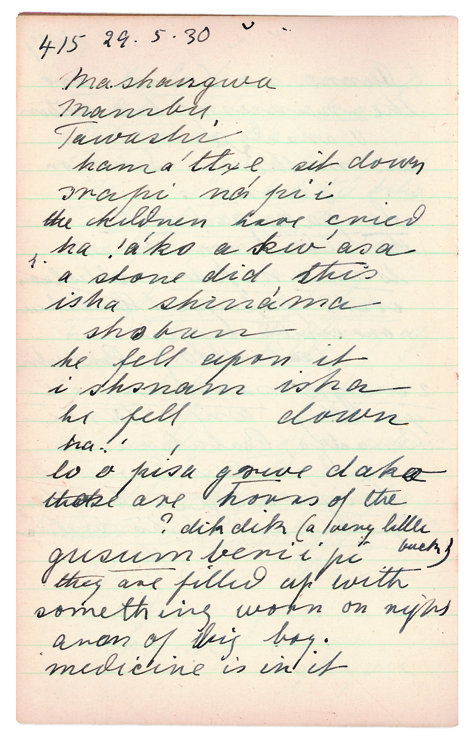 415 29.5.30
Mashangwa
Mambu
Tawashi
hamá'ttxe sit down
rrapi ná pii
the children have cried
ha !áko a kw'asa
a stone did this
isha shináma
shoban
he fell upon it
i shsnam isha
he fell down
ha!
lo o pisa grwe dako
these are horns of the
? dikdik (a very little buck)
gusumberii pi
they are filled up with
something worn on right
arm of big boy.
medicine is in it